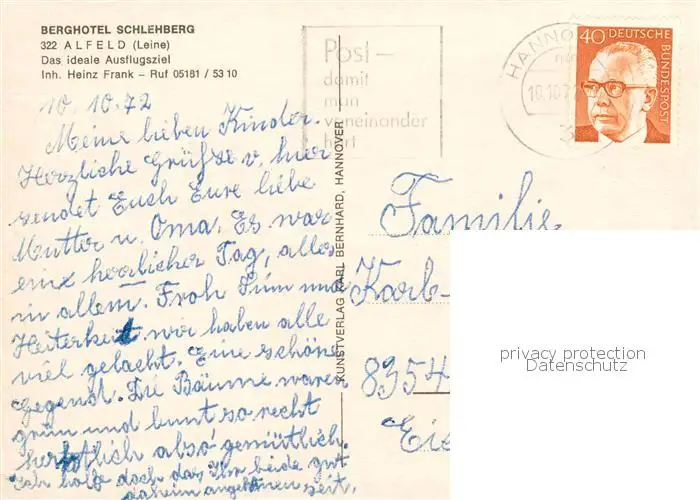 BERGHOTEL SCHLEHBERG
322 ALFELD (Leine)
Das ideale Ausflugsziel
Inh. Heinz Frank – Ruf 05181 / 53 10
Post –
damit
man
voneinander
hört
HANNO
10.10.7
40 DEUTSCHE
BUNDESPOST
10. 10. 72
Meine lieben Kinder.
Herzliche Grüße v. hier
sendet Euch Eure liebe
Mutter u. Oma. Es war
ein herrlicher Tag, alles
in allem. Froh Sinn und
Heiterkeit wir haben alle
viel gelacht. Eine schöne
Gegend. Die Bäume waren
grün und bunt so recht
herbstlich also gemütlich.
Ich hoffe doch das Ihr beide gut
daheim angekommen seit.
KUNSTVERLAG KARL BERNHARD, HANNOVER
Familie
Karl-
8354
Eis
privacy protection
Datenschutz